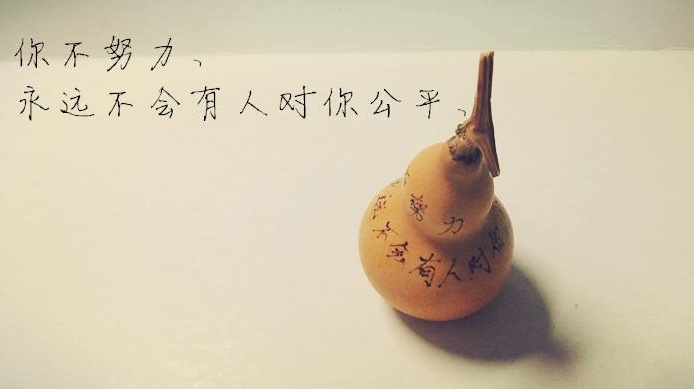 你不努力、
永远不会有人对你公平、
努力
远不会有人对你